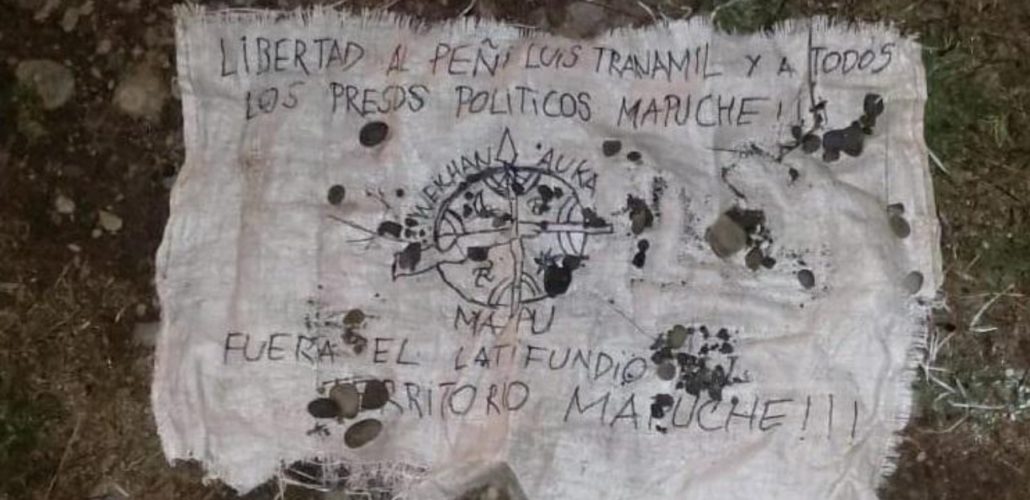 LIBERTAD AL PEÑI LUIS TRANAMIL Y A TODOS
LOS PRESOS POLITICOS MAPUCHE!!!
WEICHAN AUKA
MAPU
FUERA EL LATIFUNDIO
TERRITORO MAPUCHE!!!